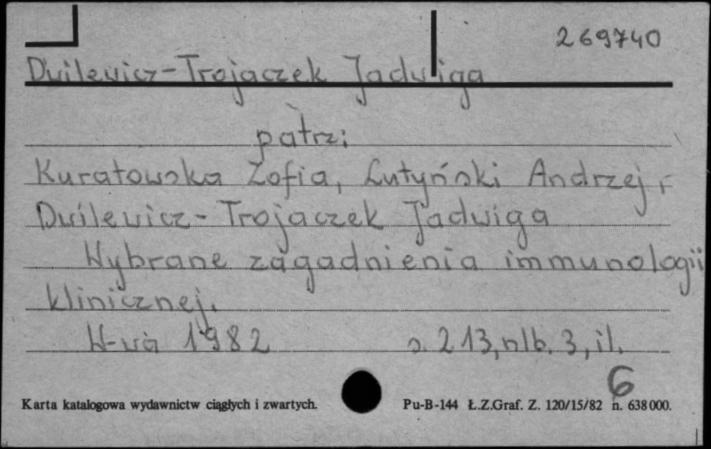 269740
Dwilewicz-Trojaczek Jadwiga
patrz:
Kuratowska Zofia, Lutyński Andrzej,
Dwilewicz-Trojaczek Jadwiga
Wybrane zagadnienia immunologii
klinicznej.
W-wa 1982 s. 213, nlb. 3, il.
6
Karta katalogowa wydawnictw ciągłych i zwartych. Pu-B-144 Ł.Z.Graf. Z. 120/15/82 n. 638000.